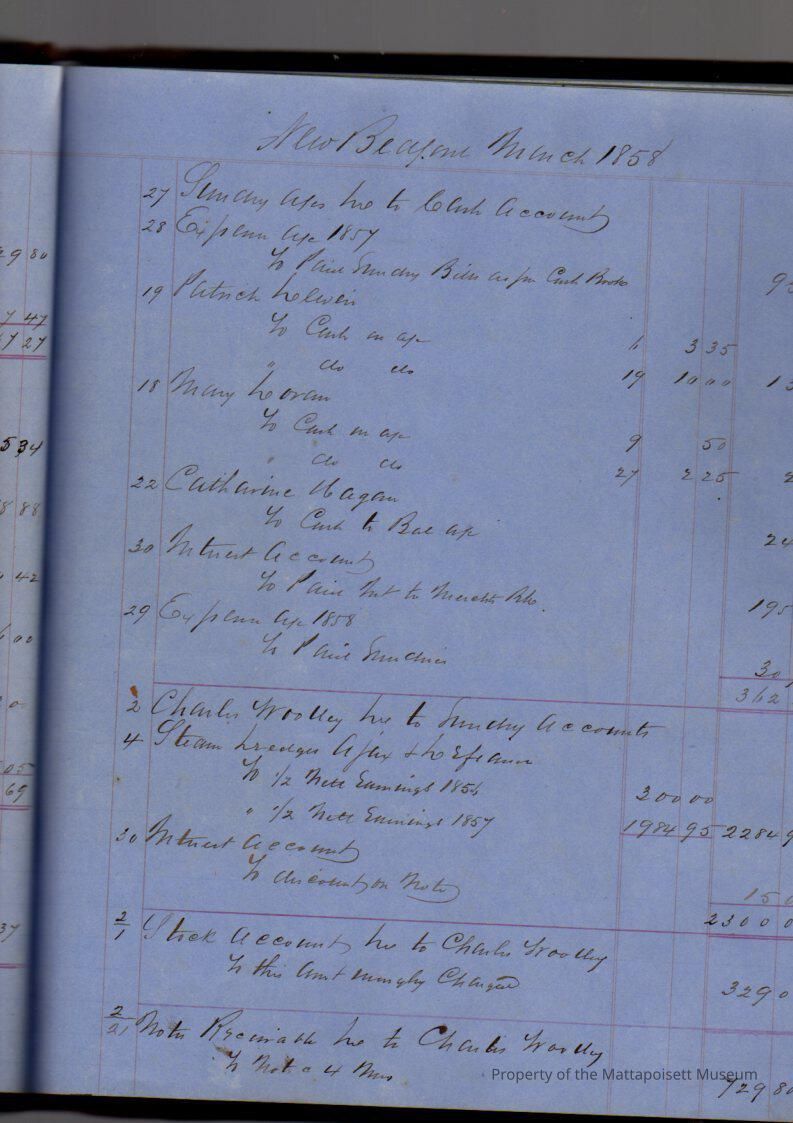 New Bedford March 1858
27 Sundry Aps Dr to Cash Account
28 Expense Ap 1857
To Paid Sunday Bills as per Cash Book
19 Patrick
To Cash on ap 6 3 35
" do do 19 10 00
18 Mary Doran
To Cash on ap 9 50
" do do 27 2 25
22 Catharine Hagan
To Cash to Bal ap 24
30 Interest Account
To Paid Int to Merchts Bk. 195
29 Expense Ap 1858
To Paid Sundries 30
362
2 Charles Woolley Dr to Sundry Accounts
4 Steam Dredges Ajax & Defiance
To 1/2 Nett Earnings 1856 300 00
" 1/2 Nett Earnings 1857 1984 95 2284 9
30 Interest Account
To discount on Note 15 0
2300 0
2/1 Stock Account Dr to Charles Woolley
To this Amt wrongly Charged 329 0
2/21 Notes Receivable Dr to Charles Woolley
To Note 4 Mos 729 80
9 80
7 47
7 27
5 34
8 88
42
00
05
69
37
Property of the Mattapoisett Museum